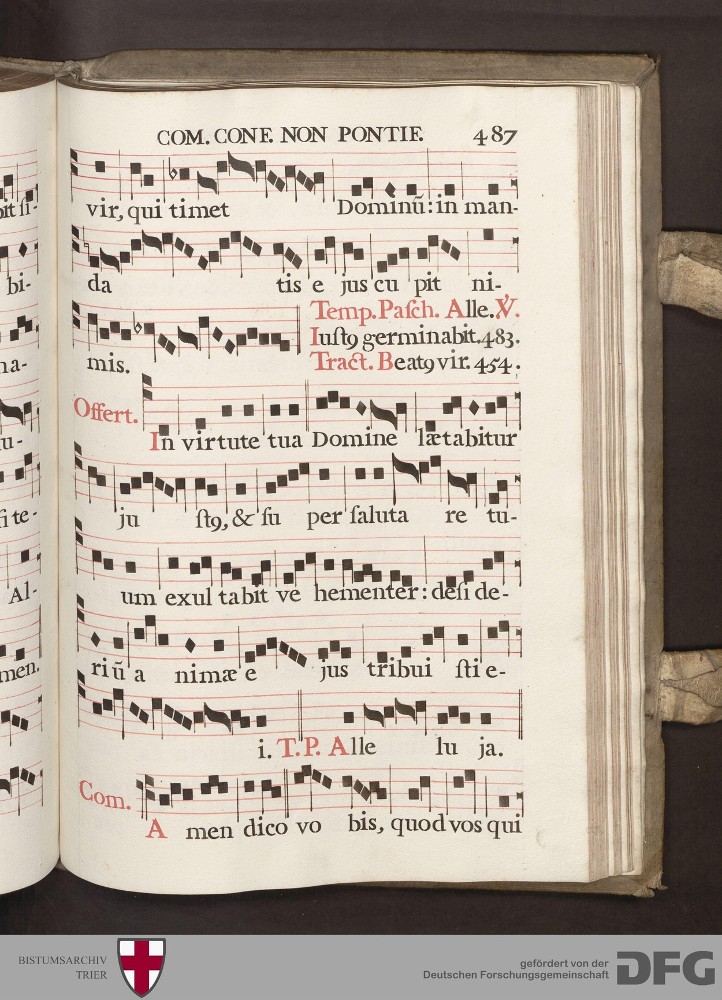 COM. CONF. NON PONTIF. 487
vir, qui timet Dominū: in man-
da tis e jus cu pit ni-
Temp. Pasch. Alle. ℣.
Iustꝯ germinabit. 483.
mis. Tract. Beatꝯ vir. 454.
Offert. In virtute tua Domine lætabitur
ju stꝯ, & su per saluta re tu-
um exul tabit ve hementer: desi de-
riū a nimæ e jus tribui sti e-
i. T. P. Alle lu ja.
Com. A men dico vo bis, quod vos qui
bi-
na-
u-
si te-
Al-
men.
BISTUMSARCHIV
TRIER
gefördert von der
Deutschen Forschungsgemeinschaft
DFG